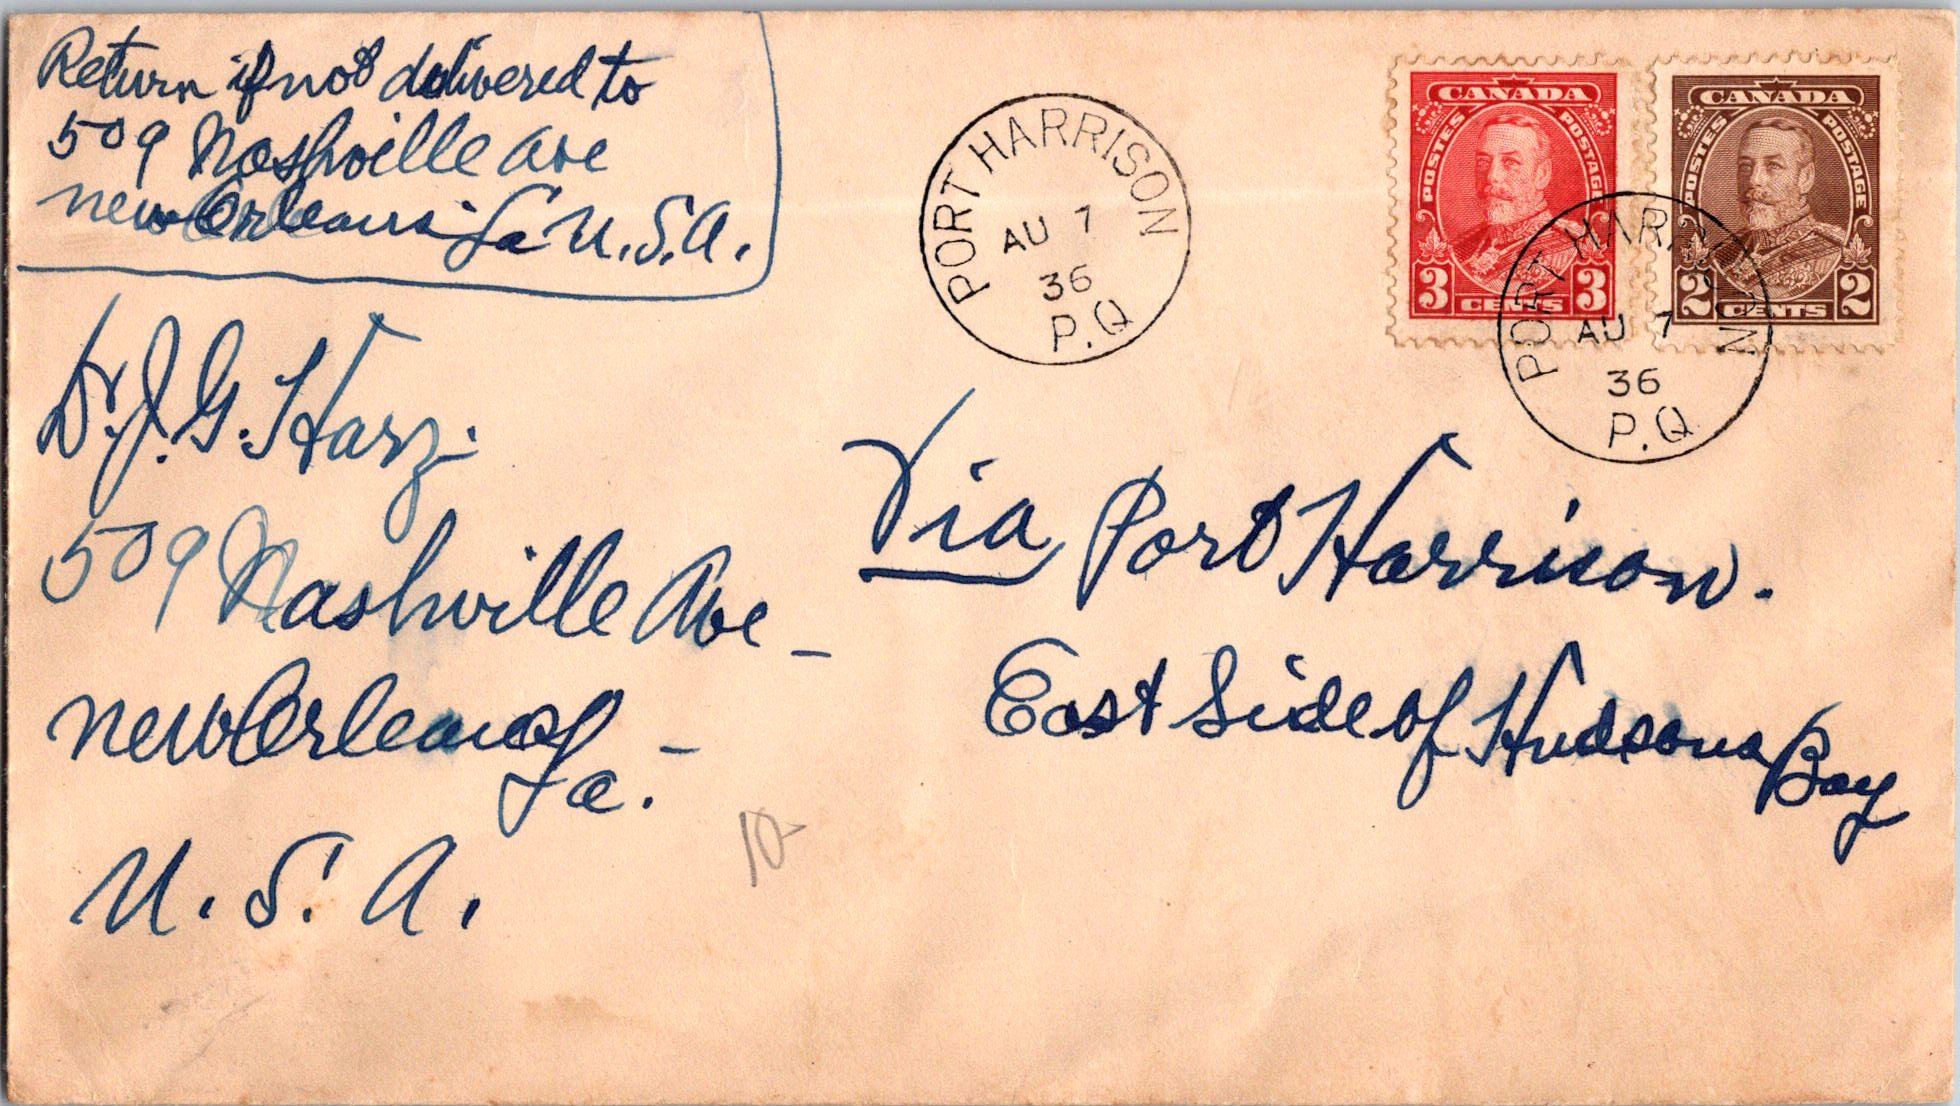 Return if not delivered to
509 Nashville Ave
New Orleans La U.S.A.
PORT HARRISON
AU 7
36
P.Q
CANADA
POSTES POSTAGE
3 CENTS 3
CANADA
POSTES POSTAGE
2 CENTS 2
PORT HARRISON
AU 7
36
P.Q
Dr. J. G. Harz.
509 Nashville Ave -
New Orleans -
La.
U. S. A.
Via Port Harrison.
East Side of Hudsons Bay
10